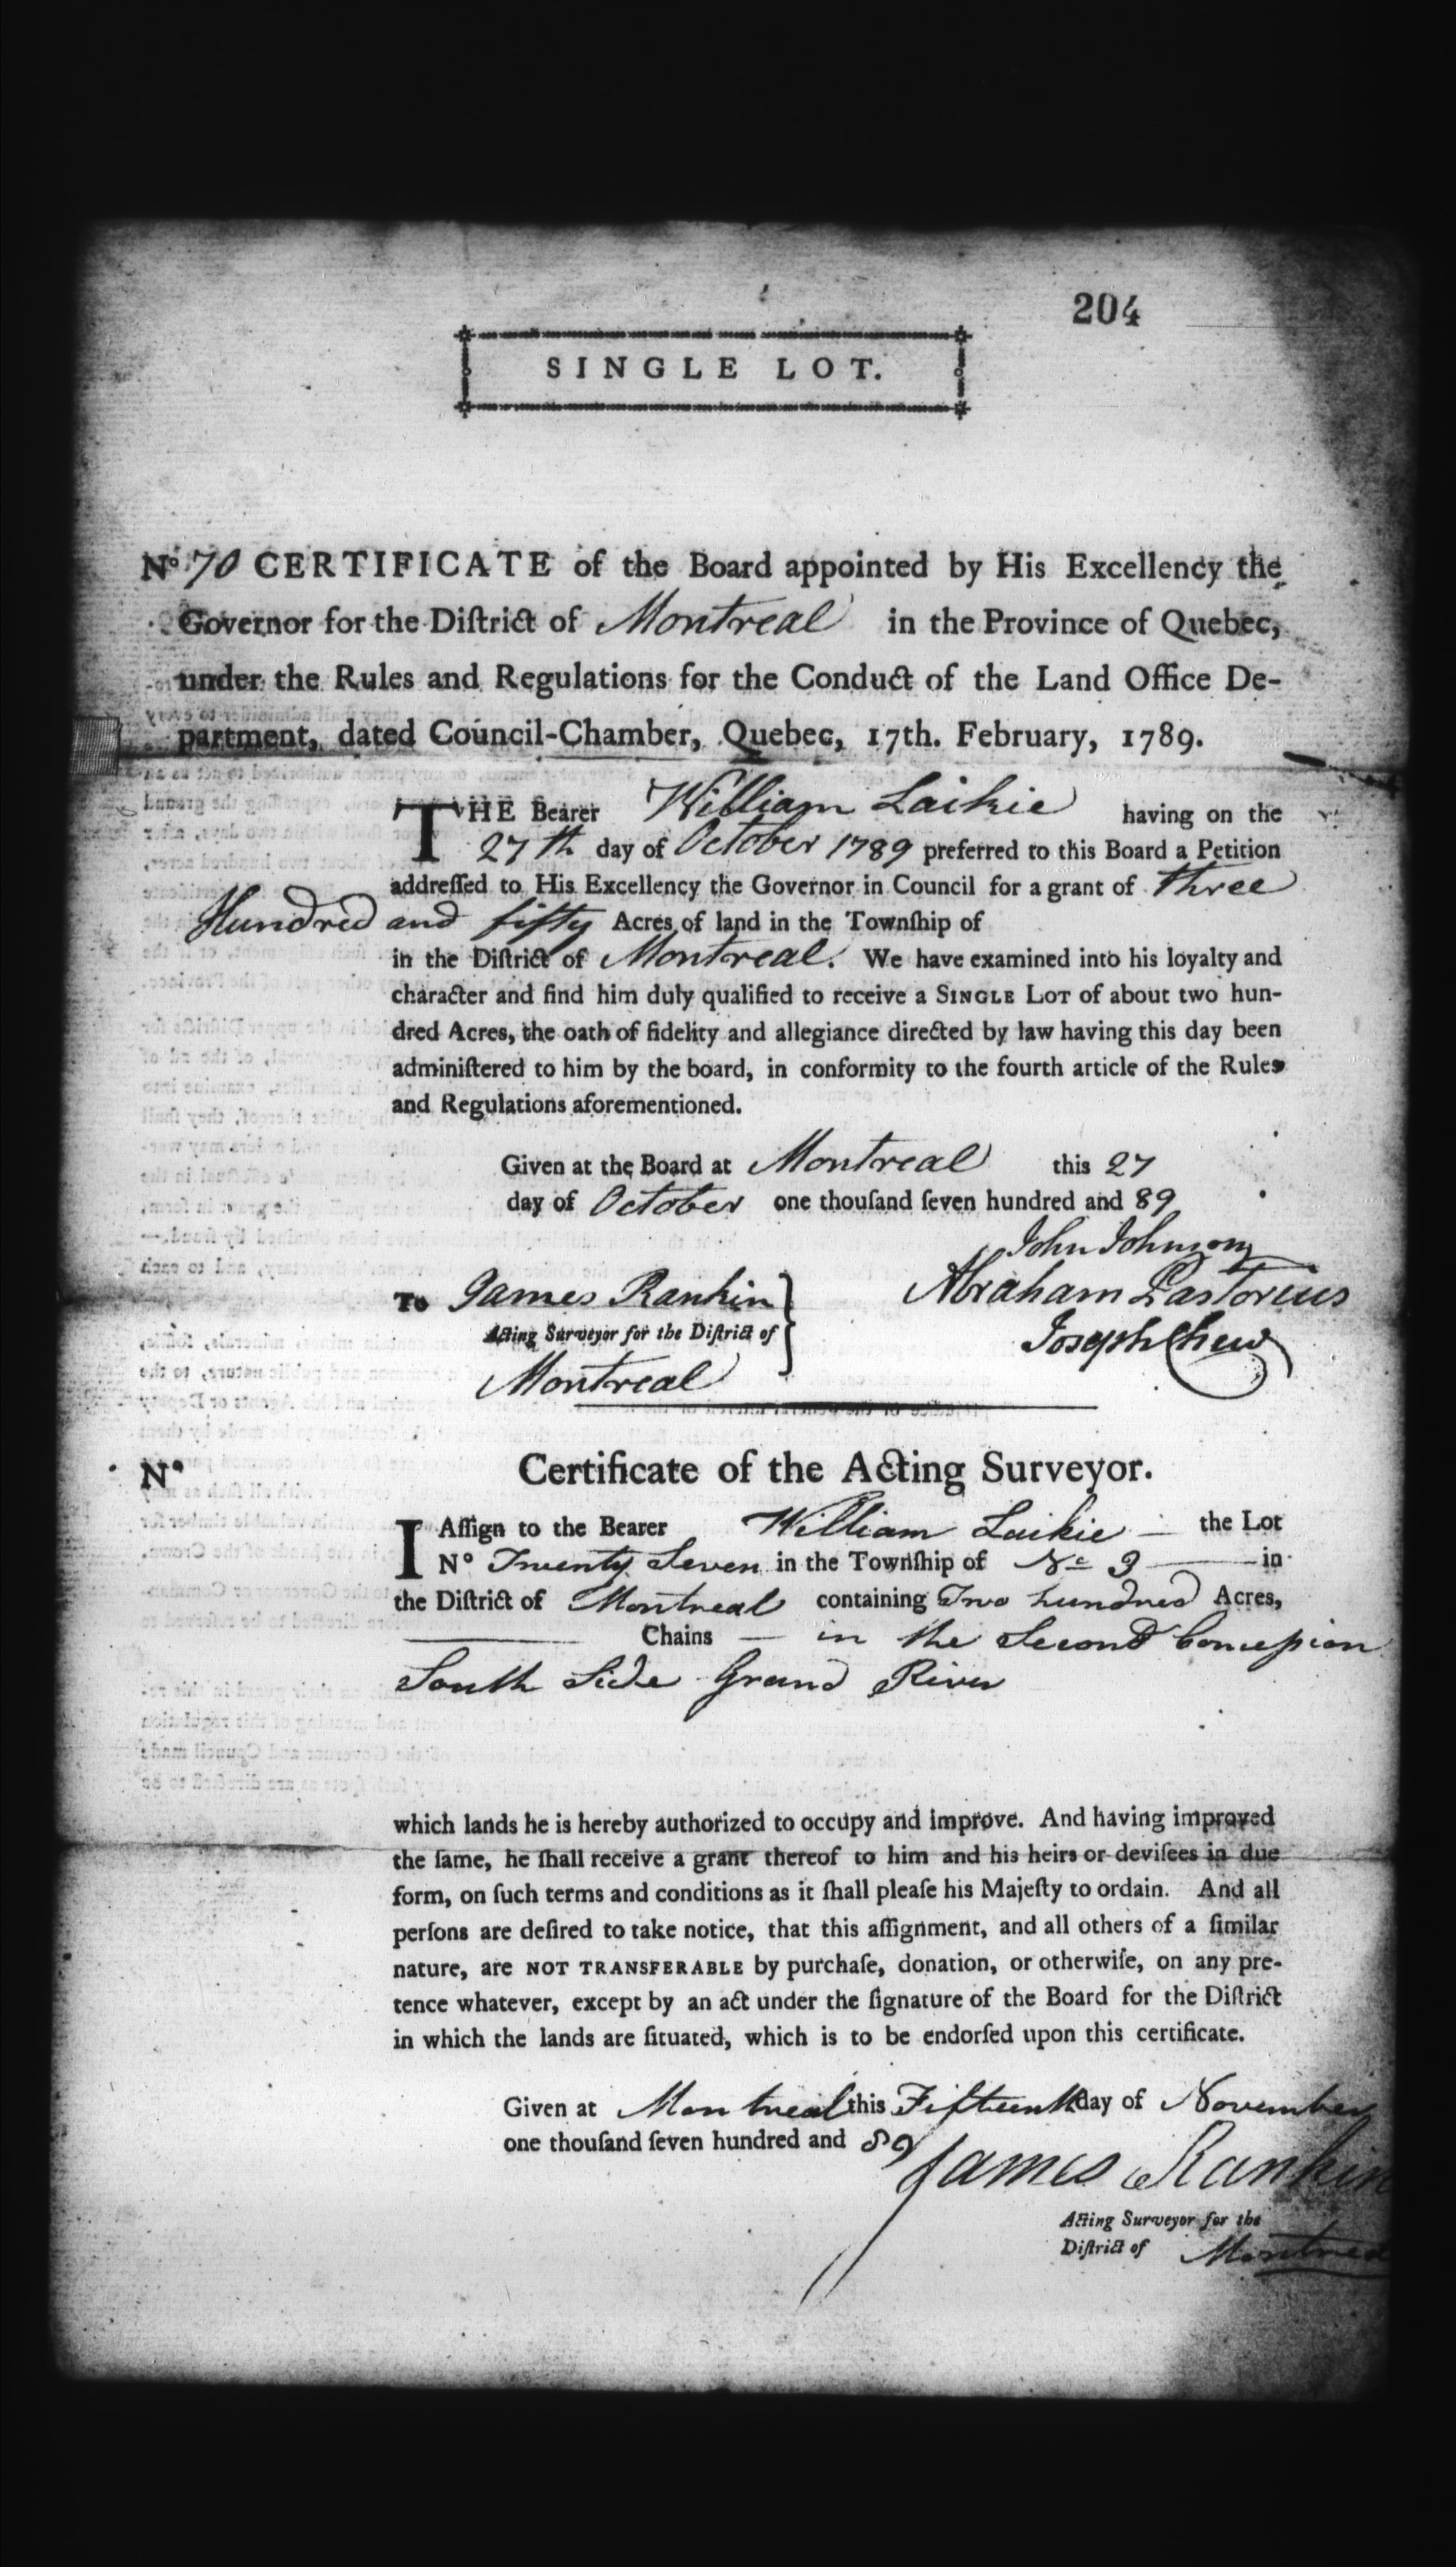 204
SINGLE LOT.
No. 70 CERTIFICATE of the Board appointed by His Excellency the
Governor for the Diſtrict of Montreal in the Province of Quebec,
under the Rules and Regulations for the Conduct of the Land Office De-
partment, dated Council-Chamber, Quebec, 17th. February, 1789.
THE Bearer William Laikie having on the
27th day of October 1789 preferred to this Board a Petition
addreſſed to His Excellency the Governor in Council for a grant of three
Hundred and fifty Acres of land in the Townſhip of
in the Diſtrict of Montreal. We have examined into his loyalty and
character and find him duly qualified to receive a SINGLE LOT of about two hun-
dred Acres, the oath of fidelity and allegiance directed by law having this day been
adminiſtered to him by the board, in conformity to the fourth article of the Rules
and Regulations aforementioned.
Given at the Board at Montreal this 27
day of October one thouſand ſeven hundred and 89
John Johnson
To James Rankin Abraham Pastorius
Acting Surveyor for the Diſtrict of Joseph Chew
Montreal
No Certificate of the Acting Surveyor.
I Aſſign to the Bearer William Laikie the Lot
No Twenty Seven in the Townſhip of No 3 in
the Diſtrict of Montreal containing Two hundred Acres,
Chains in the Second Concession
South Side Grand River
which lands he is hereby authorized to occupy and improve. And having improved
the ſame, he ſhall receive a grant thereof to him and his heirs or deviſees in due
form, on ſuch terms and conditions as it ſhall pleaſe his Majeſty to ordain. And all
perſons are deſired to take notice, that this aſſignment, and all others of a ſimilar
nature, are NOT TRANSFERABLE by purchaſe, donation, or otherwiſe, on any pre-
tence whatever, except by an act under the ſignature of the Board for the Diſtrict
in which the lands are ſituated, which is to be endorſed upon this certificate.
Given at Montreal this Fifteenth day of November
one thouſand ſeven hundred and 89
James Rankin
Acting Surveyor for the
Diſtrict of Montreal